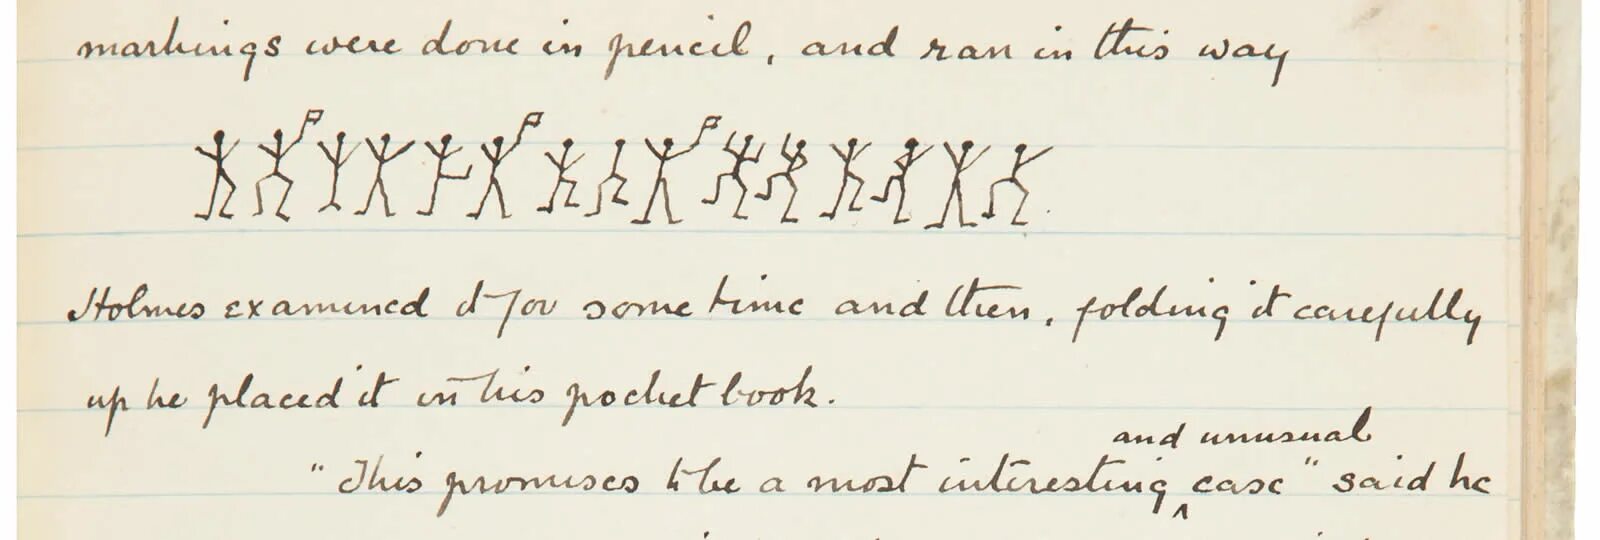 markings were done in pencil, and ran in this way
Holmes examined it for some time and then, folding it carefully
up he placed it in his pocket book.
and unusual
"This promises to be a most interesting ‸ case" said he